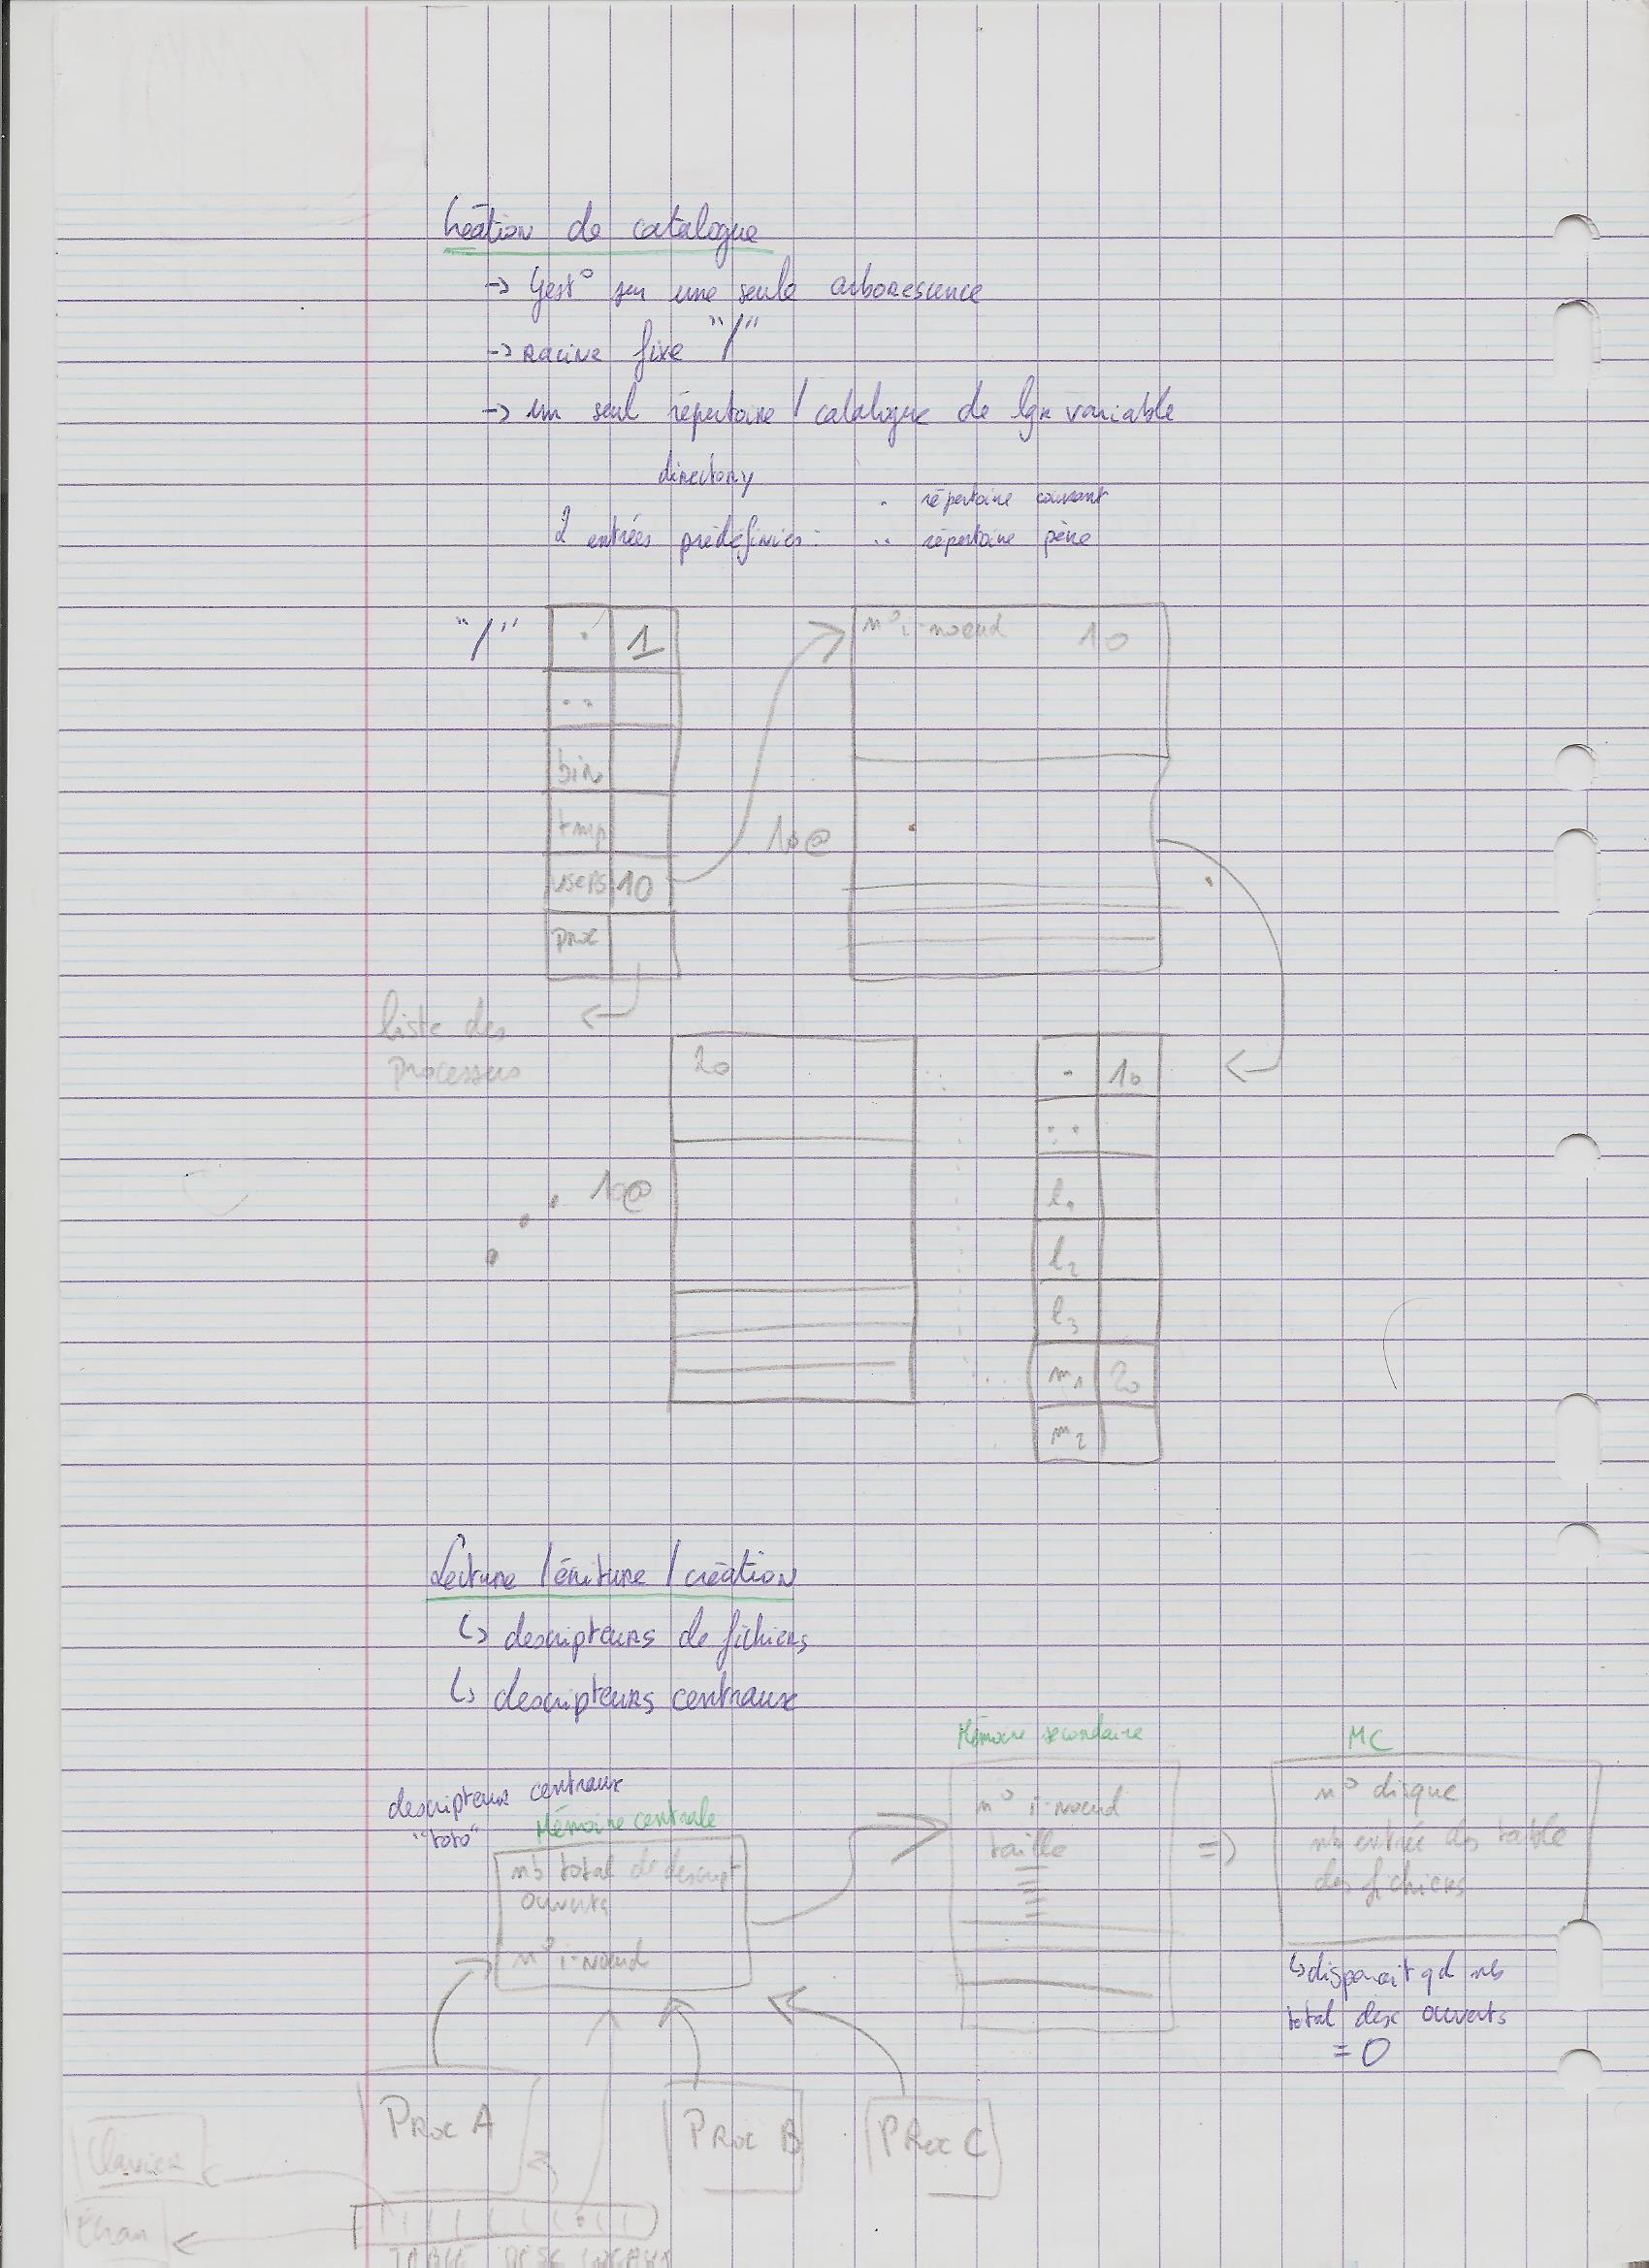 Création de catalogue
→ Gest° sur une seule arborescence
→ racine fixe "/"
→ un seul répertoire / catalogue de lgr variable
directory
2 entrées prédéfinies :
. répertoire courant
.. répertoire père
"/"
. 1
..
bin
tmp
users 10
proc
n° i-noeud 10
10@
liste des
processus
20
10@
. 10
..
l1
l2
l3
m1 20
m2
Lecture / écriture / création
↳ descripteurs de fichiers
↳ descripteurs centraux
descripteur centraux
"toto"
Mémoire centrale
nb total de descript
ouverts
n° i-noeud
Mémoire secondaire
n° i-noeud
taille
=>
MC
n° disque
nb entrée ds table
des fichiers
↳ disparait qd nb
total desc ouverts
= 0
Proc A
Proc B
Proc C
Clavier
Ecran
TABLE DESC LOCAUX